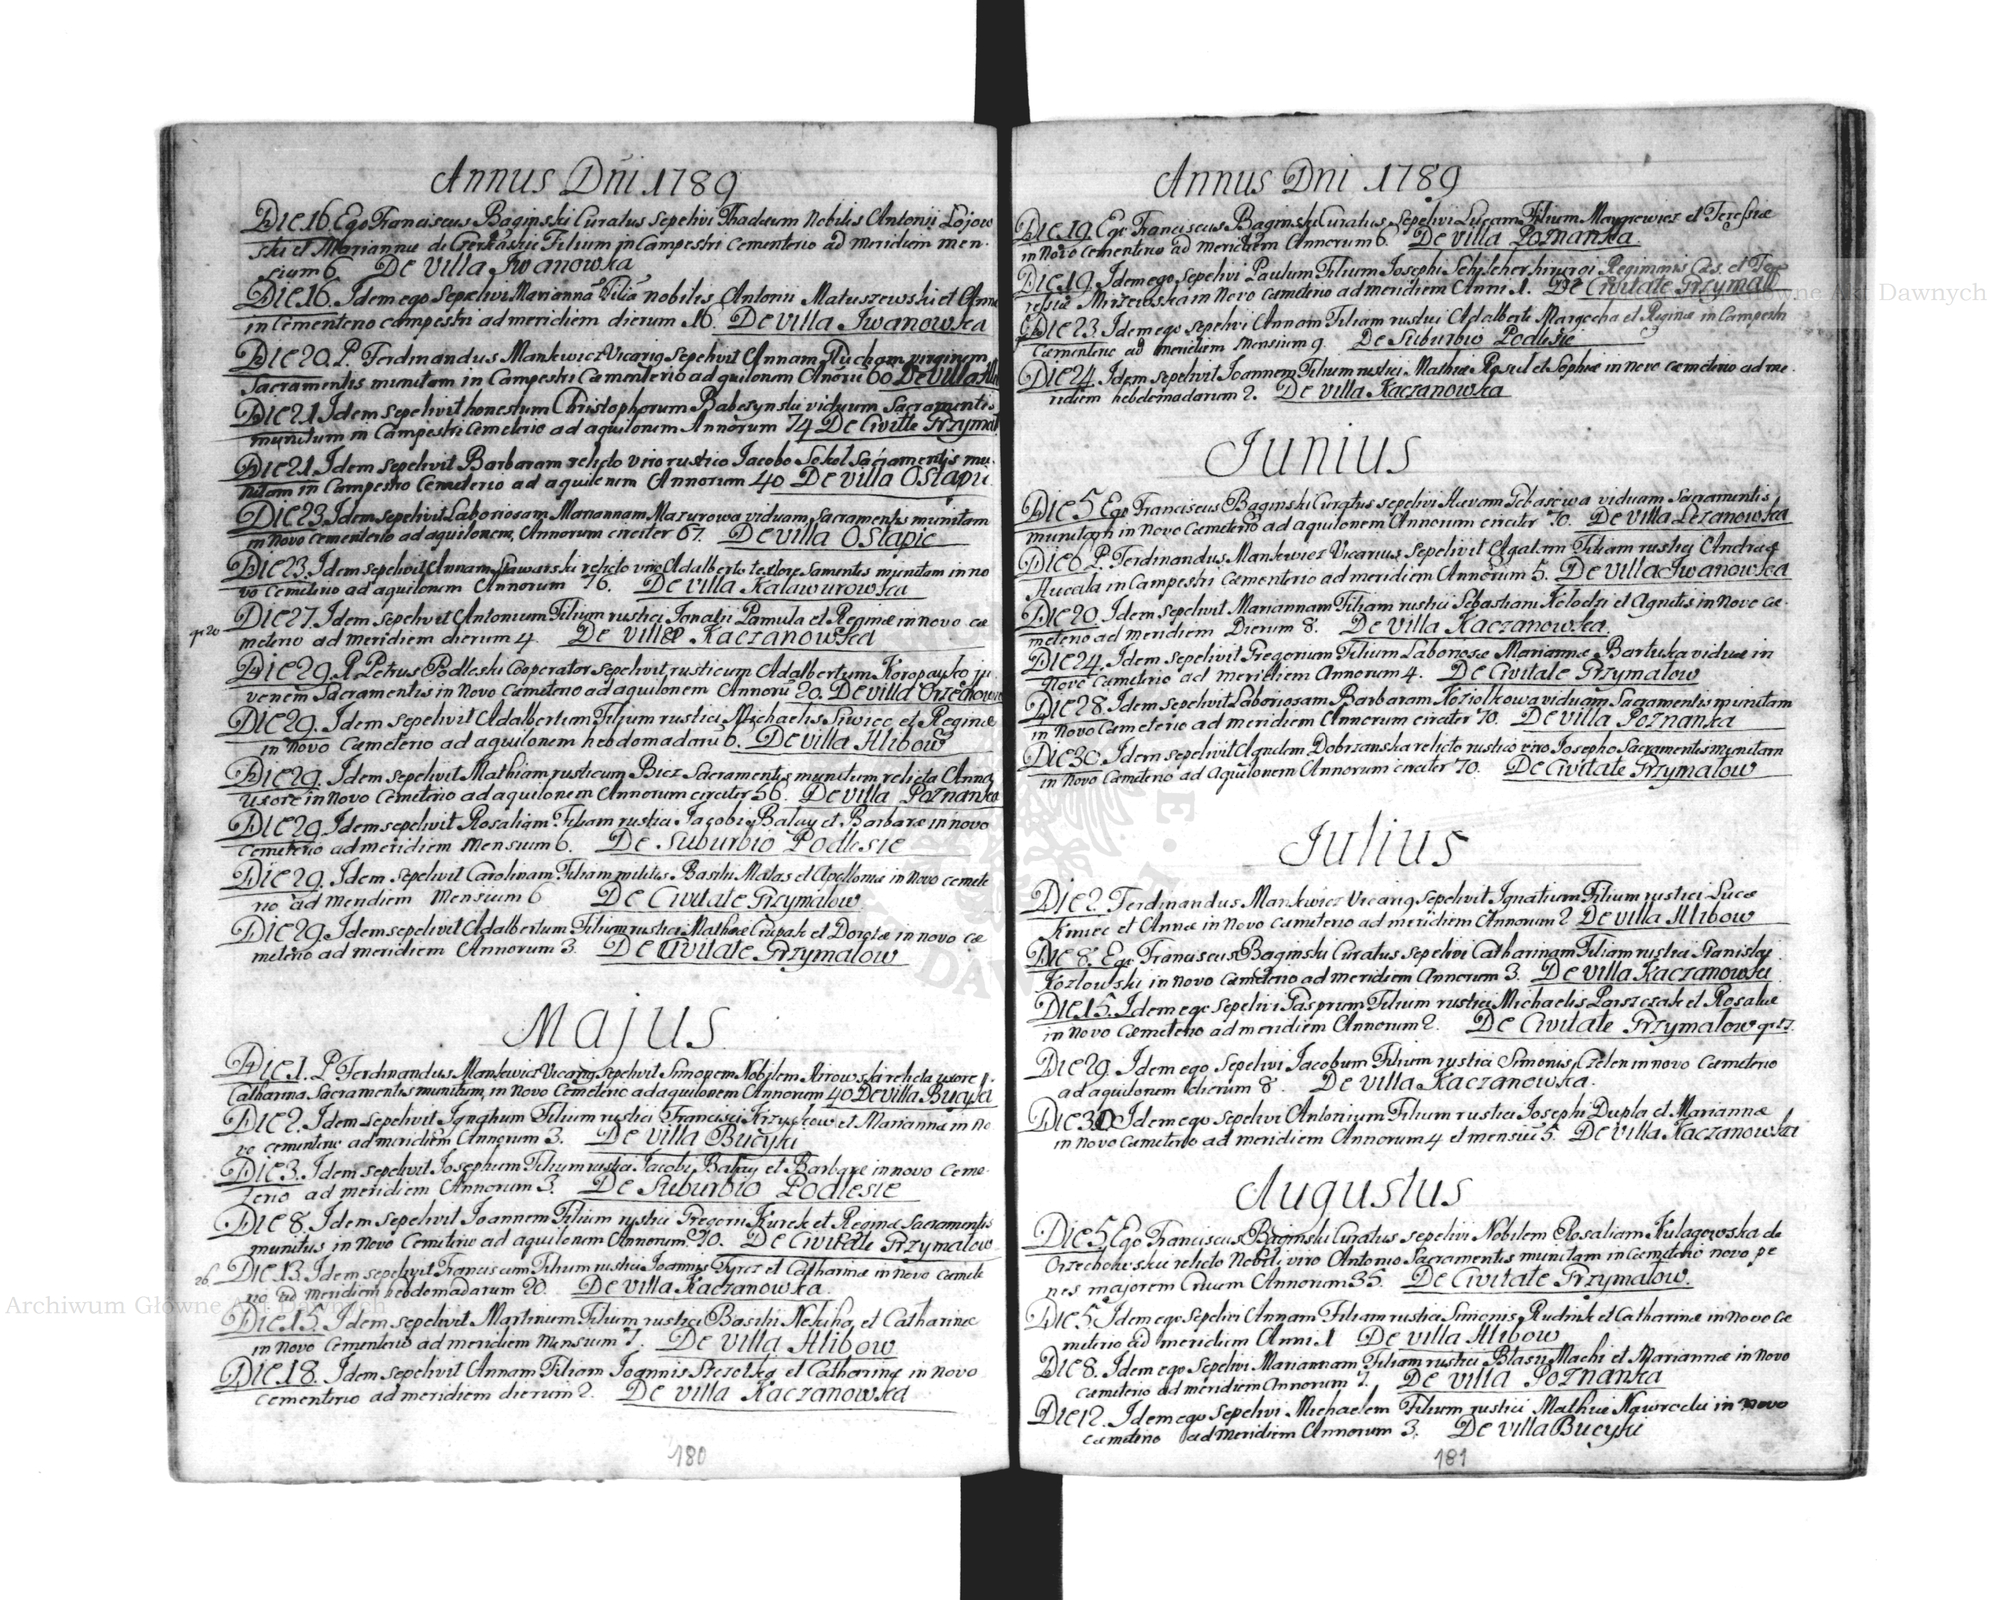 Annus Dñi 1789
Die 16 Ego Franciscus Baginski Curatus Sepelivi Thadæum Nobilis Antonii Łojow
ski et Mariannæ de Filium in Campestri Cementerio ad meridiem men-
sium 6. De Villa Jwanowka
Die 16. Idem ego Sepelivi Mariannã Filiã nobilis Antonii Matuszewski et Annæ
in Cementerio campestri ad meridiem dierum 16. De villa Jwanowka
Die 20. P. Ferdinandus Mankwicz Vicariq Sepelivit Annam virginem
Sacramentis munitam in Campestri Cæmenterio ad quilonem Anorũ 60. De villa
Die 21 Idem Sepelivit honestum Christophorum viduum Sacramentis
munitum in Campestri Cemeterio ad aquilonem Annorum 74 De Civitte Grzymał
Die 21. Idem sepelivit Barbaram relicto viro rustico Jacobo Sokol Sacramentis mu-
nitam in Campestro Cemeterio ad aquilonem Annorum 40 De Villa Ostapie
Die 23. Idem sepelivit Laboriosam Mariannam Mazurowa viduam Sacramentis munitam
in Novo Cementerio ad aquilonem, Annorum circiter 67. De villa Ostapie
Die 23. Idem sepelivit Annam relicto viro Adalberto textore Samentis munitam in no
vo Cemeterio ad aquilonem Annorum 76. De villa Kalawurowka
gr 20
Die 27. Idem Sepelivit Antonium Filium rustici Ignatii Pamula et Reginæ in novo cæ
meterio ad meridiem dierum 4. De villæ Kaczanowka
Die 29. P. Petrus Podleski Cooperator Sepelivit rusticum Adalbertum Koropayko ju-
venem Sacramentis in Novo Cæmeterio ad aquilonem Annorũ 20. De villa Orzechow
Die 29. Idem Sepelivit Adalbertum Filium rustici Michaelis Siwiec et Reginæ
in Novo Cæmeterio ad aquilonem hebdomadarũ 6. De villa Hlibow
Die 29. Idem sepelivit Mathiam rusticum Biez Sacramentis munitum relicta Anna
Uxore in Novo Cemeterio ad aquilonem Annorum circiter 56. De villa Poznanka
Die 29. Idem sepelivit Rosaliam Filiam rustici Jacobi Balay et Barbaræ in novo
Cemeterio ad meridiem Mensium 6. De Suburbio Podlesie
Die 29. Idem Sepelivit Carolinam Filiam militis Basilii Matas et Apolloniæ in Novo cemete
rio ad meridiem Mensium 6 De Civitate Grzymalow
Die 29. Idem sepelivit Adalbertum Filium rustici Mathiæ Ciupak et Dorotæ in novo cæ
meterio ad meridiem Annorum 3. De Civitate Grzymalow
Majus
Die 1. P. Ferdinandus Mankwicz Vicariq Sepelivit Simonem Nobilem relicta uxore
Catharina Sacramentis munitum, in Novo Cemeterio ad aquilonem Annorum 40 De villa Bucyki
Die 2. Idem Sepelivit Ignatium Filium rustici Francisci et Mariannæ in No
vo cementerio ad meridiem Annorum 3. De villa Bucyki
Die 3. Idem Sepelivit Josephum Filium rustici Jacobi Balay et Barbaræ in novo Ceme-
terio ad meridiem Annorum 3. De Suburbio Podlesie
Die 8. Idem Sepelivit Joannem Filium rustici Gregorii Kurek et Reginæ Sacramentis
munitus in Novo Cemeterio ad aquilonem Annorum 70. De Civitate Grzymalow
26.
Die 13. Idem sepelivit Franciscum Filium rustici Joannis Tyrcz et Catharinæ in Novo Cæmete
rio ad Meridiem hebdomadarum 20. De Villa Kaczanowka.
Die 15. Idem sepelivit Martinum Filium rustici Basilii Nekiha et Catharinæ
in Novo Cementerio ad meridiem Mensium 7. De Villa Hlibow
Die 18. Idem Sepelivit Annam Filiam Joannis et Catharinæ in Novo
Cementerio ad meridiem dierum 2. De villa Kaczanowka
180
Annus Dni 1789
Die 19. Ego Franciscus Baginski Curatus Sepelivi Lucam Filium et Teressiæ
in Novo Cementerio ad meridiem Annorum 6. De Villa Poznanka
Die 19. Idem ego Sepelivi Paulum Filium Josephi chirurgi Regiminis Cæs. et Te
ressiæ in Novo Cæmeterio ad meridiem Anni 1. De Civitate Grzymał
Die 23. Idem ego sepelivi Annam Filiam rustici Adalberti Margocha et Reginæ in Campestri
Cæmenterio ad meridiem Mensium 9. De Suburbio Podlesie
Die 24. Idem Sepelivit Joannem Filium rustici Mathiæ et Sophiæ in novo cæmeterio ad me-
ridiem hebdomadarum 2. De Villa Kaczanowka
Junius
Die 5 Ego Franciscus Baginski Curatus sepelivi viduam Sacramentis
munitam in Novo Cæmeterio ad aquilonem Annorum circiter 70. De Villa Lezanowka
Die 6 P. Ferdinandus Mankwicz Vicarius Sepelivit Agatam Filiam rustici Andreæ
Hucala in Campestri Cæmenterio ad meridiem Annorum 5. De Villa Jwanowka
Die 20. Idem Sepelivit Mariannam Filiam rustici Sebastiani Kolodzi et Agnetis in Novo Cæ-
meterio ad meridiem Dierum 8. De Villa Kaczanowka.
Die 24. Idem Sepelivit Gregorium Filium Laboriosæ Mariannæ Bartuka viduæ in
Novo Cæmeterio ad meridiem Annorum 4. De Civitate Grzymalow
Die 28. Idem Sepelivit Laboriosam Barbaram Koziolkowa viduam Sacramentis munitam
in Novo Cæmeterio ad meridiem Annorum circiter 70. De Villa Poznanka
Die 30. Idem sepelivit Agnetem Dobrzanska relicto rustico viro Josepho Sacramentis munitam
in Novo Cæmeterio ad aquilonem Annorum circiter 70. De Civitate Grzymatow
Julius
Die 2. Ferdinandus Mankwicz Vicariq Sepelivit Ignatium Filium rustici Lucæ
Kmiec et Annæ in Novo Cæmeterio ad meridiem Annorum 2 De villa Hlibow
Die 8. Ego Franciscus Baginski Curatus Sepelivi Catharinam Filiam rustici Stanislai
Kozlowski in novo Cæmeterio ad meridiem Annorum 3. De Villa Kaczanowka
Die 15. Idem ego Sepelivi Gasprum Filium rustici Michaelis Parszczak et Rosaliæ
in Novo Cæmeterio ad meridiem Annorum 2. De Civitate Grzymalow
Die 29. Idem ego Sepelivi Jacobum Filium rustici Simonis Czelen in novo Cæmeterio
ad aquilonem dierum 8. De Villa Kaczanowka.
Die 30 Idem ego Sepelivi Antonium Filium rustici Josephi Dupla et Mariannæ
in Novo Cæmeterio ad meridiem Annorum 4 et mensiũ 5. De Villa Kaczanowka
Augustus
Die 5 Ego Franciscus Baginski Curatus sepelivi Nobilem Rosaliam Kulagowska de
Orzechowskie relicto Nobili viro Antonio Sacramentis munitam in Cæmeterio novo pe
nes majorem Crucem Annorum 35. De Civitate Grzymalow.
Die 5. Idem ego Sepelivi Annam Filiam rustici Simonis Rudnik et Catharinæ in Novo Cæ
meterio ad meridiem Anni 1 De villa Hlibow
Die 8. Idem ego Sepelivi Mariannam Filiam rustici Blasii Machi et Mariannæ in Novo
Cæmeterio ad meridiem Annorum 7. De Villa Poznanka
Die 12. Idem ego Sepelivi Michaelem Filium rustici Mathiæ Nawrocki in Novo
Cæmeterio ad meridiem Annorum 3. De villa Bucyki
181
Archiwum Główne Akt Dawnych